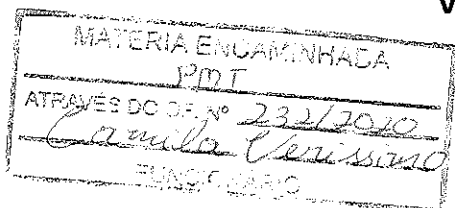 MATERIA ENCAMINHADA
PMT
ATRAVÉS DO OF. Nº 232/2020
Camila Verissimo
FUNCIONÁRIO